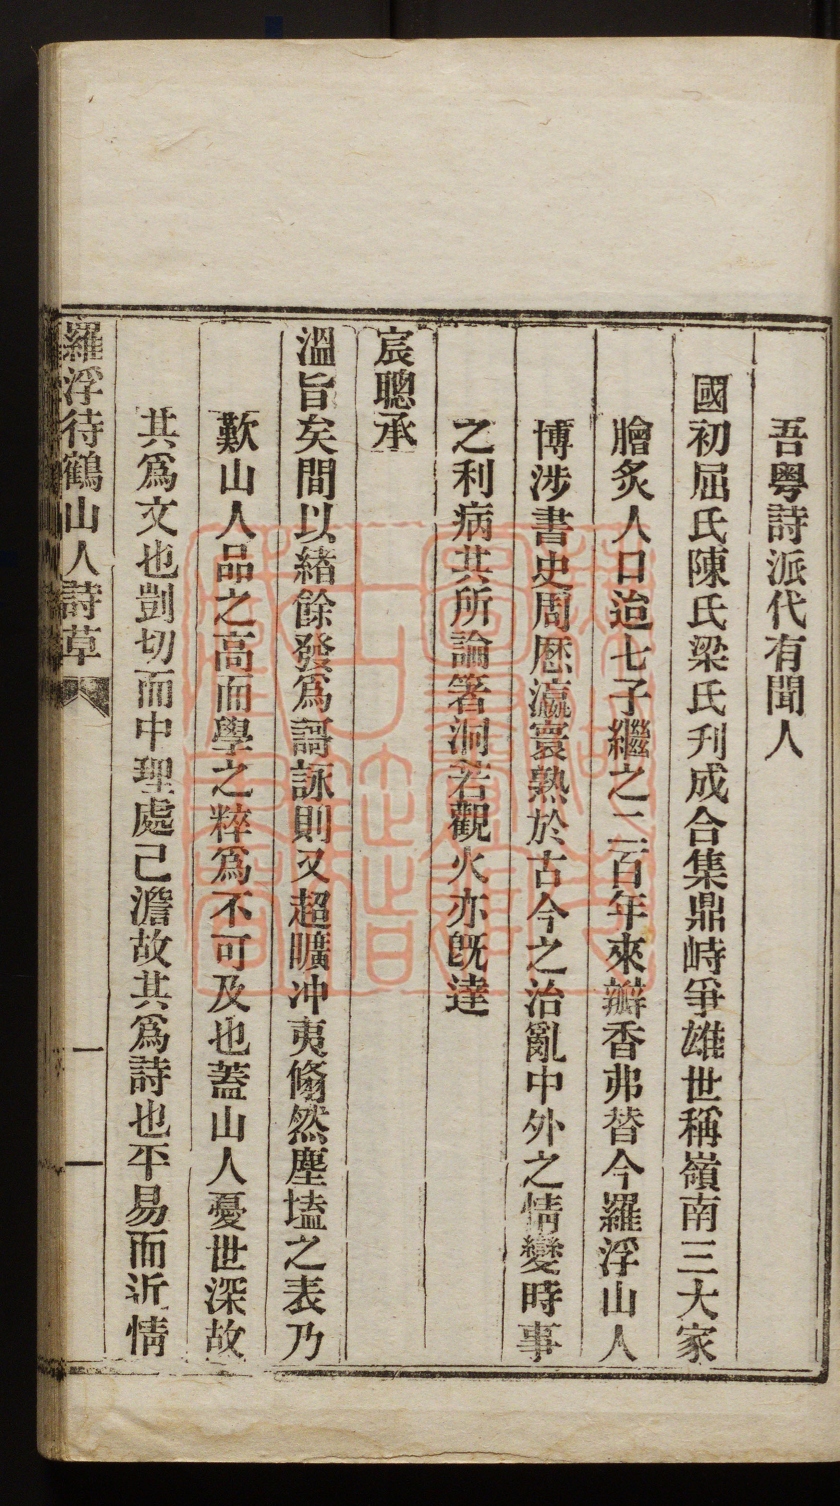 吾粵詩派代有聞人
國初屈氏陳氏梁氏刋成合集鼎峙爭雄世稱嶺南三大家
膾炙人口迨七子繼之二百年來瓣香弗替今羅浮山人
博涉書史周厯瀛寰熟於古今之治亂中外之情變時事
之利病其所論箸洞若觀火亦旣達
宸聰承
溫旨矣間以緒餘發爲謌詠則又超曠冲夷翛然塵壒之表乃
歎山人品之高而學之粹爲不可及也蓋山人憂世深故
其爲文也剴切而中理處己澹故其爲詩也平易而近情
羅浮待鶴山人詩草
一